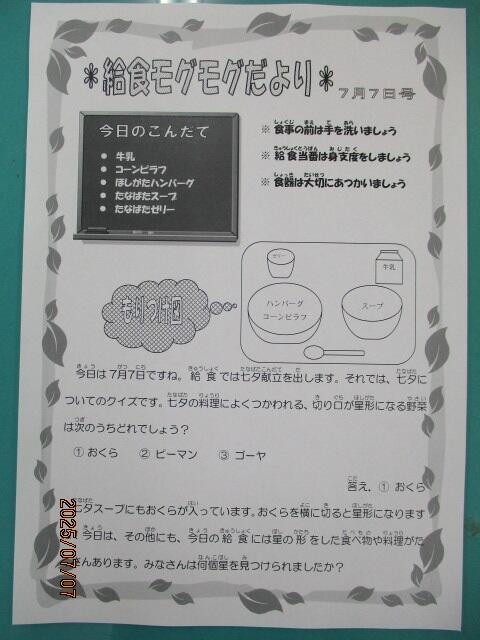 *給食モグモグだより*
7月7日号
今日のこんだて
● 牛乳
● コーンピラフ
● ほしがたハンバーグ
● たなばたスープ
● たなばたゼリー
※ 食事の前は手を洗いましょう
※ 給食当番は身支度をしましょう
※ 食器は大切にあつかいましょう
もりつけ図
ゼリー
牛乳
ハンバーグ
コーンピラフ
スープ
今日は7月7日ですね。給食では七夕献立を出します。それでは、七夕に
ついてのクイズです。七夕の料理によくつかわれる、切り口が星形になる野菜
は次のうちどれでしょう？
① おくら ② ピーマン ③ ゴーヤ
答え、① おくら
七夕スープにもおくらが入っています。おくらを横に切ると星形になります
今日は、その他にも、今日の給食には星の形をした食べ物や料理がた
さんあります。みなさんは何個星を見つけられましたか？
2025/07/07